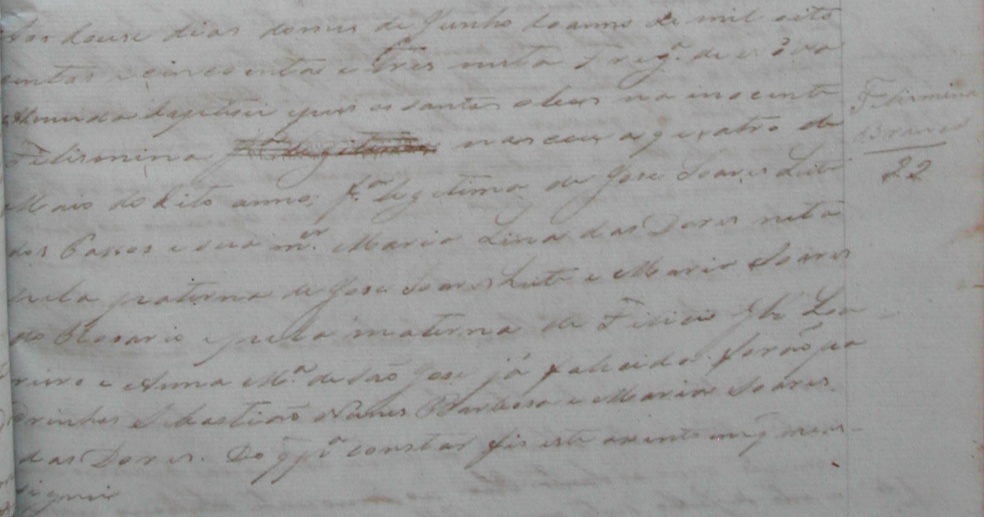 Aos douse dias do mes de Junho do anno de mil oito
centos e cincoenta e tres nesta Freg.ª de
baptisei e pus os santos oleos na inocente
Felismina nasceu a quatro de
Maio do dito anno f.ª legitima de Jose Soares Leite
dos Passos e sua m.er Maria Lina das Dores neta
pela paterna de Jose Soares Leite e Maria Soares
do Rosario e pela materna de Felicio Lou
reiro e Anna M.ª de São Jose já falicida forão pa
drinhos Sebastião Nunes Barbosa e Maria Soares
das Dores. Do q p.ª constar fis este asento em q me as-
signei
Felismina
Branca
22